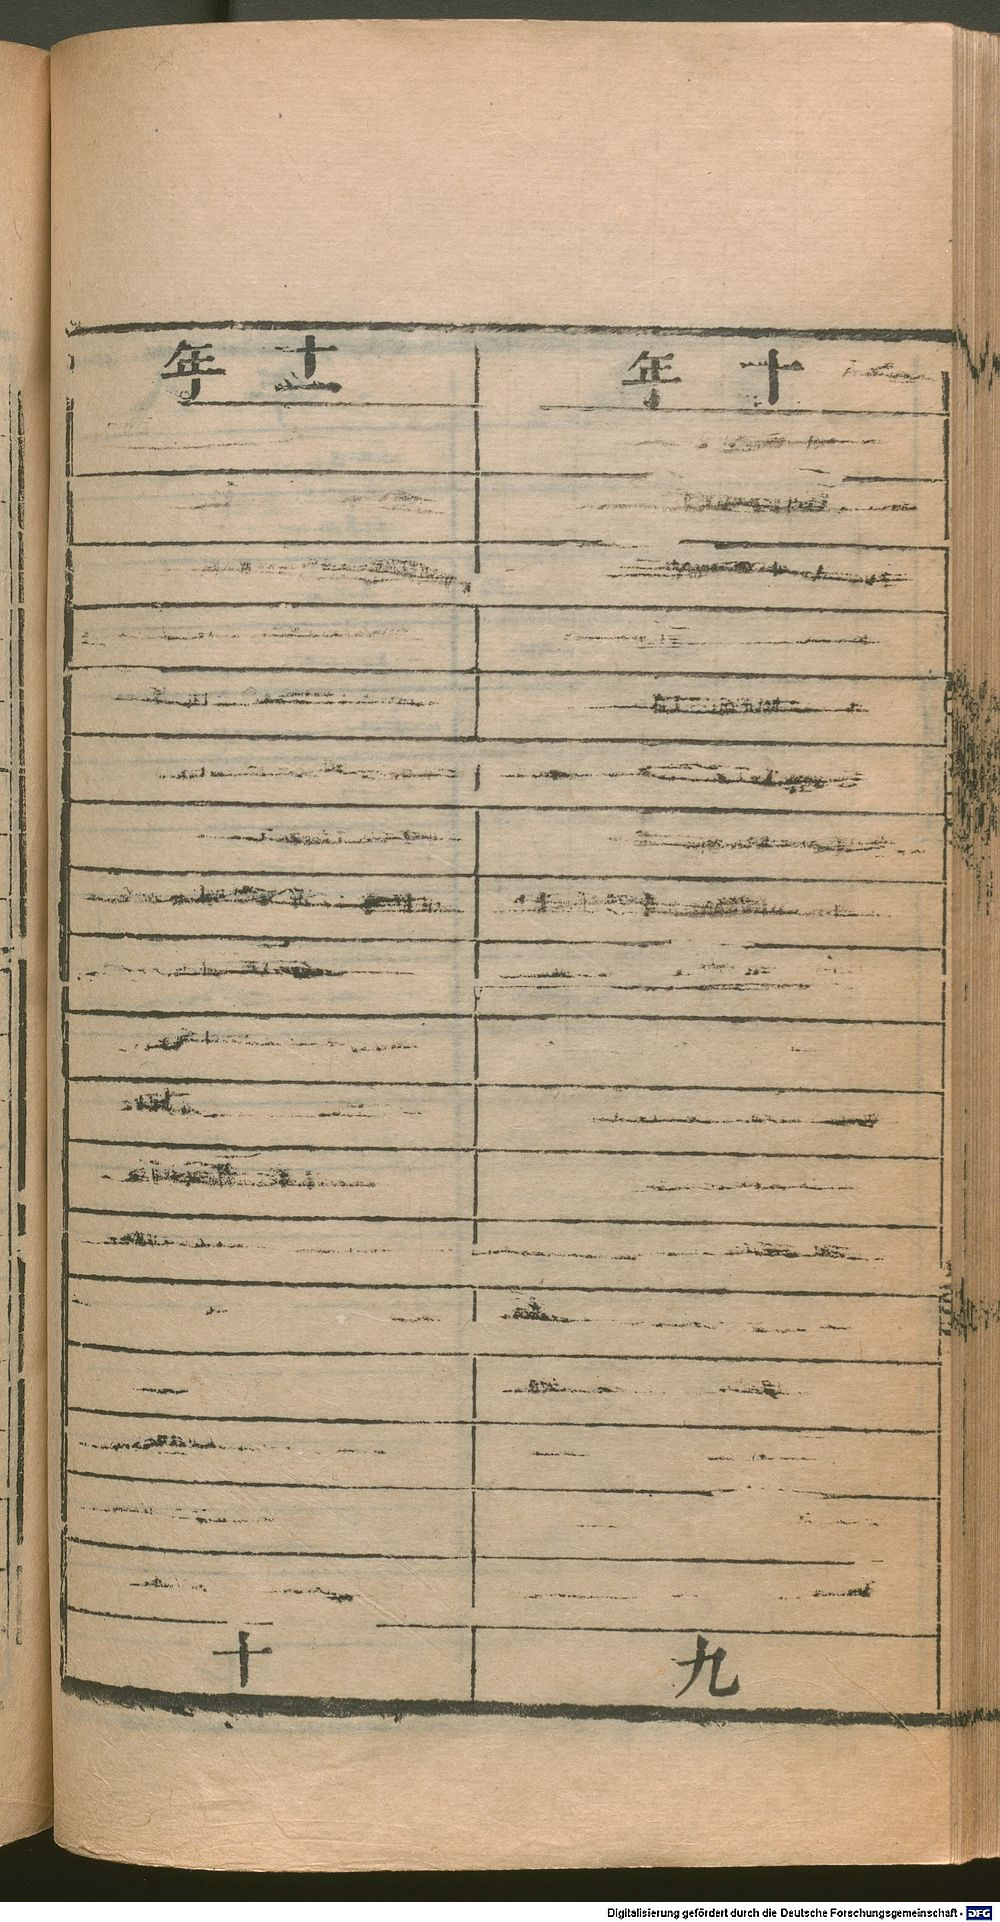 十年
九
十一年
十
Digitalisierung gefördert durch die Deutsche Forschungsgemeinschaft - DFG